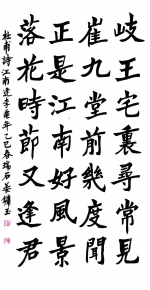 岐王宅裏尋常見
崔九堂前幾度聞
正是江南好風景
落花時節又逢君
杜甫詩江南逢李龜年乙巳春瑞石姜鏞玉